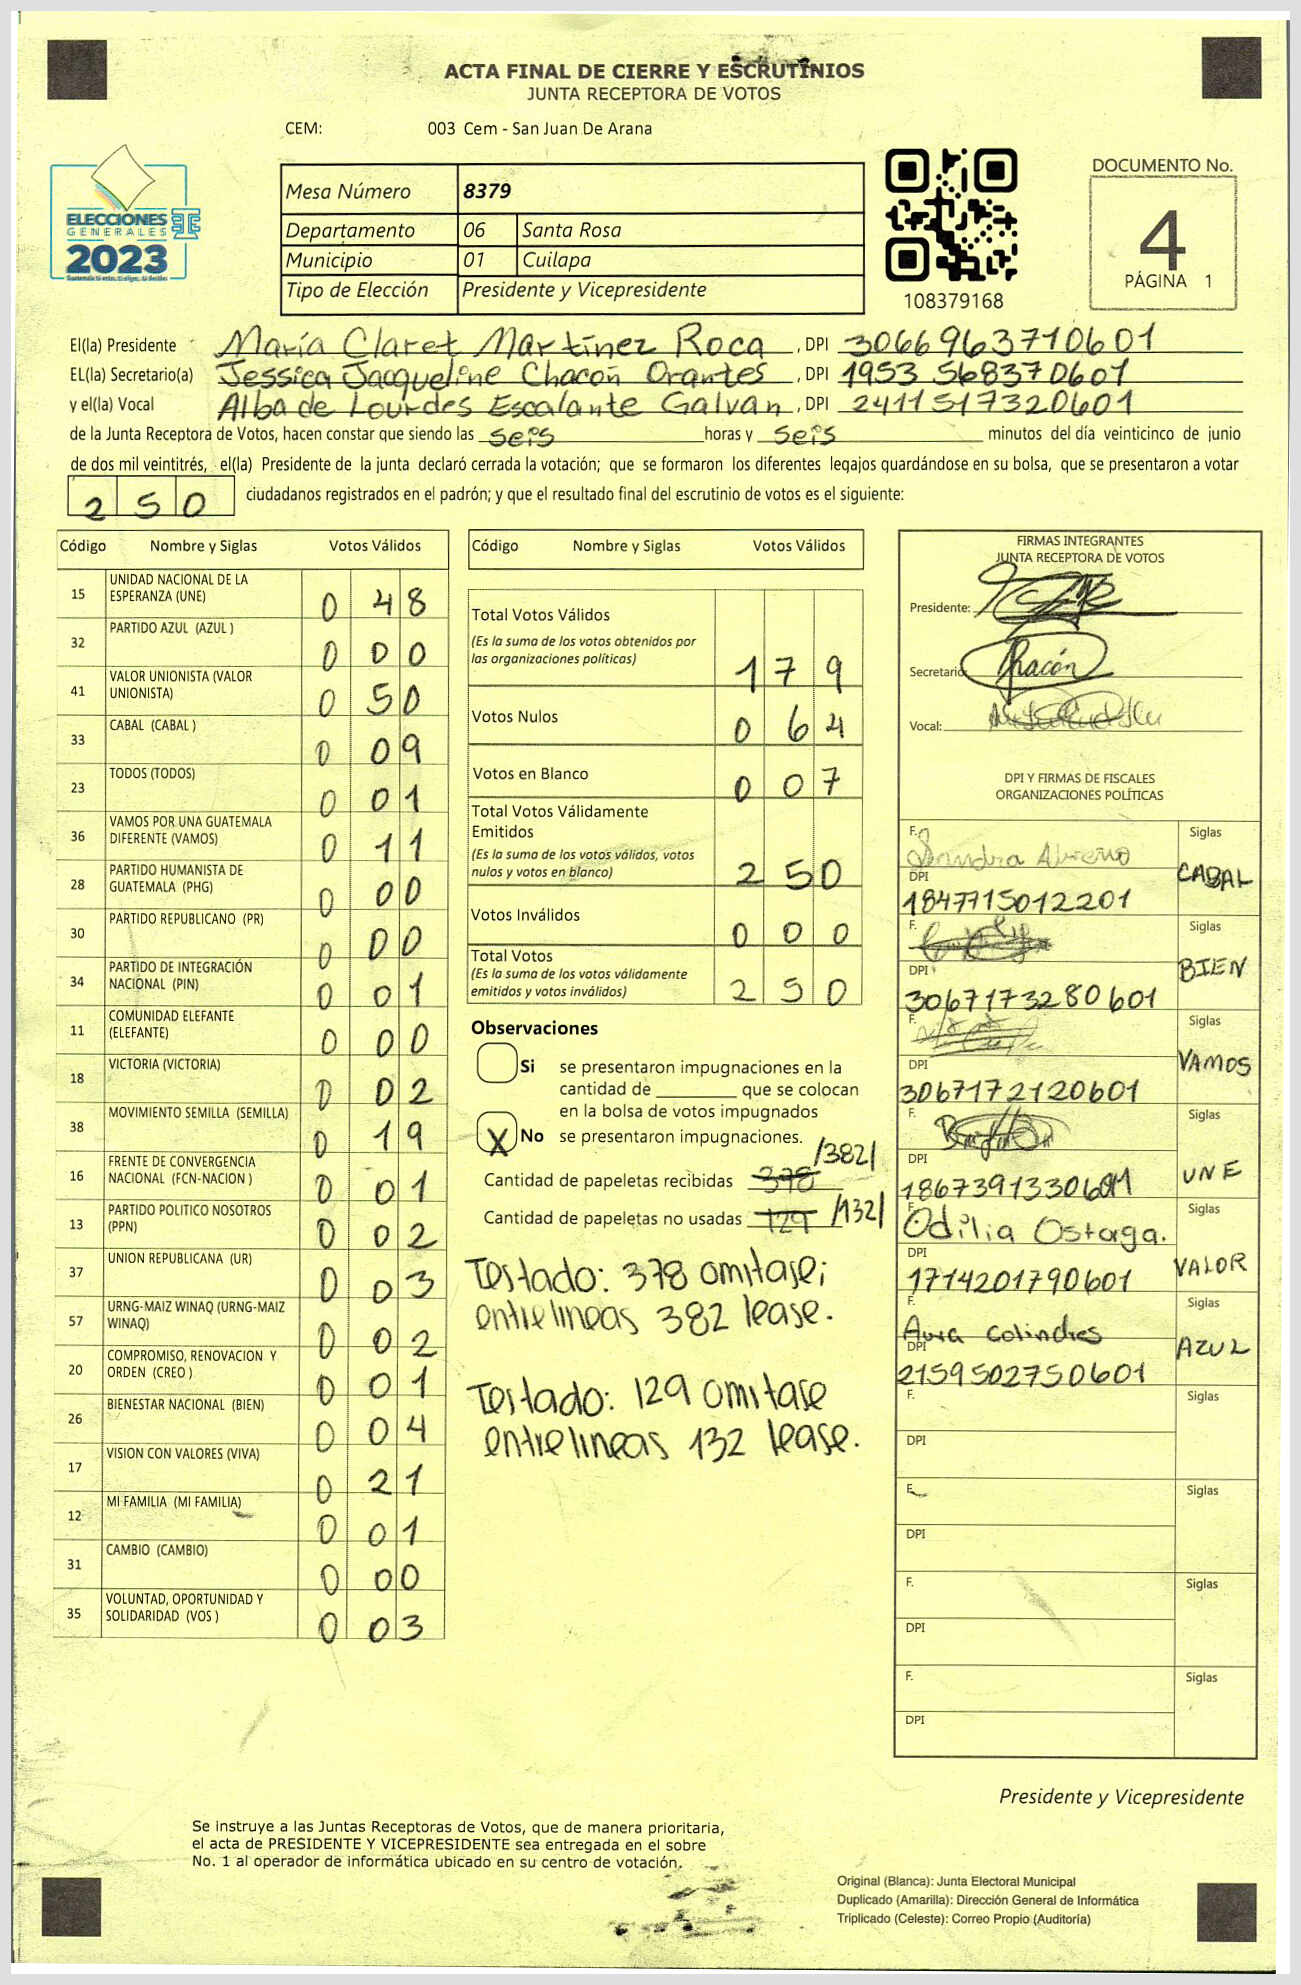 ACTA FINAL DE CIERRE Y ESCRUTINIOS
JUNTA RECEPTORA DE VOTOS
CEM: 003 Cem - San Juan De Arana
ELECCIONES
GENERALES
2023
Mesa Número 8379
Departamento 06 Santa Rosa
Municipio 01 Cuilapa
Tipo de Elección Presidente y Vicepresidente
108379168
DOCUMENTO No.
4
PÁGINA 1
El(la) Presidente María Claret Martínez Roca , DPI 3066963710601
EL(la) Secretario(a) Jessica Jacqueline Chacón Orantes , DPI 1953 568370601
y el(la) Vocal Alba de Lourdes Escalante Galvan , DPI 2411517320601
de la Junta Receptora de Votos, hacen constar que siendo las seis horas y seis minutos del día veinticinco de junio
de dos mil veintitrés, el(la) Presidente de la junta declaró cerrada la votación; que se formaron los diferentes legajos guardándose en su bolsa, que se presentaron a votar
250 ciudadanos registrados en el padrón; y que el resultado final del escrutinio de votos es el siguiente:
Código Nombre y Siglas Votos Válidos
15 UNIDAD NACIONAL DE LA ESPERANZA (UNE) 0 4 8
32 PARTIDO AZUL (AZUL ) 0 0 0
41 VALOR UNIONISTA (VALOR UNIONISTA) 0 5 0
33 CABAL (CABAL ) 0 0 9
23 TODOS (TODOS) 0 0 1
36 VAMOS POR UNA GUATEMALA DIFERENTE (VAMOS) 0 1 1
28 PARTIDO HUMANISTA DE GUATEMALA (PHG) 0 0 0
30 PARTIDO REPUBLICANO (PR) 0 0 0
34 PARTIDO DE INTEGRACIÓN NACIONAL (PIN) 0 0 1
11 COMUNIDAD ELEFANTE (ELEFANTE) 0 0 0
18 VICTORIA (VICTORIA) 0 0 2
38 MOVIMIENTO SEMILLA (SEMILLA) 0 1 9
16 FRENTE DE CONVERGENCIA NACIONAL (FCN-NACION ) 0 0 1
13 PARTIDO POLITICO NOSOTROS (PPN) 0 0 2
37 UNION REPUBLICANA (UR) 0 0 3
57 URNG-MAIZ WINAQ (URNG-MAIZ WINAQ) 0 0 2
20 COMPROMISO, RENOVACION Y ORDEN (CREO ) 0 0 1
26 BIENESTAR NACIONAL (BIEN) 0 0 4
17 VISION CON VALORES (VIVA) 0 2 1
12 MI FAMILIA (MI FAMILIA) 0 0 1
31 CAMBIO (CAMBIO) 0 0 0
35 VOLUNTAD, OPORTUNIDAD Y SOLIDARIDAD (VOS ) 0 0 3
Código Nombre y Siglas Votos Válidos
Total Votos Válidos
(Es la suma de los votos obtenidos por
las organizaciones políticas) 1 7 9
Votos Nulos 0 6 4
Votos en Blanco 0 0 7
Total Votos Válidamente
Emitidos
(Es la suma de los votos válidos, votos
nulos y votos en blanco) 2 5 0
Votos Inválidos 0 0 0
Total Votos
(Es la suma de los votos válidamente
emitidos y votos inválidos) 2 5 0
Observaciones
Si se presentaron impugnaciones en la
cantidad de ________ que se colocan
en la bolsa de votos impugnados
X No se presentaron impugnaciones.
Cantidad de papeletas recibidas 378 /382/
Cantidad de papeletas no usadas 129 /132/
Testado: 378 omitase;
entrelineas 382 lease.
Testado: 129 omitase
entrelineas 132 lease.
FIRMAS INTEGRANTES
JUNTA RECEPTORA DE VOTOS
Presidente:
Secretario Chacón
Vocal:
DPI Y FIRMAS DE FISCALES
ORGANIZACIONES POLÍTICAS
F. Siglas
DPI CABAL
1847715012201
F. Siglas
DPI BIEN
3067173280601
F. Siglas
DPI VAMOS
3067172120601
F. Siglas
DPI UNE
F. Odilia Ostorga. Siglas
DPI VALOR
1714201790601
F. Aura Colindres Siglas
DPI AZUL
2159502750601
F. Siglas
DPI
F. Siglas
DPI
F. Siglas
DPI
F. Siglas
DPI
Presidente y Vicepresidente
Se instruye a las Juntas Receptoras de Votos, que de manera prioritaria,
el acta de PRESIDENTE Y VICEPRESIDENTE sea entregada en el sobre
No. 1 al operador de informática ubicado en su centro de votación.
Original (Blanca): Junta Electoral Municipal
Duplicado (Amarilla): Dirección General de Informática
Triplicado (Celeste): Correo Propio (Auditoría)